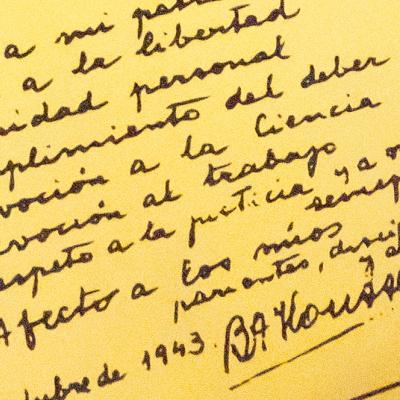 a mi
a la libertad
nidad personal
mplimiento del deber
voción a la Ciencia
evoción al trabajo
espeto a la justicia y a
Afecto a los míos
parientes,
tubre de 1943. BAHoussay